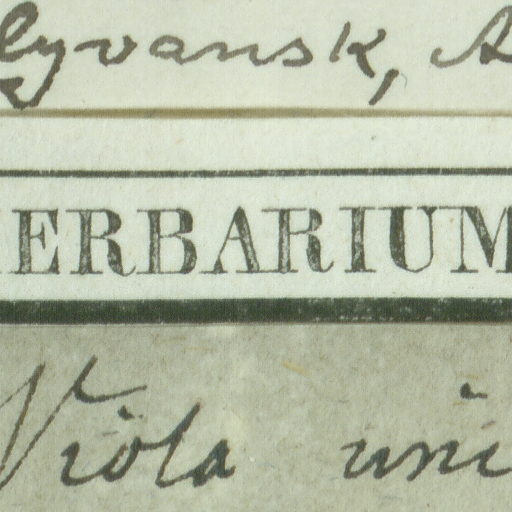 lyvansk, A
HERBARIUM
Viola uni